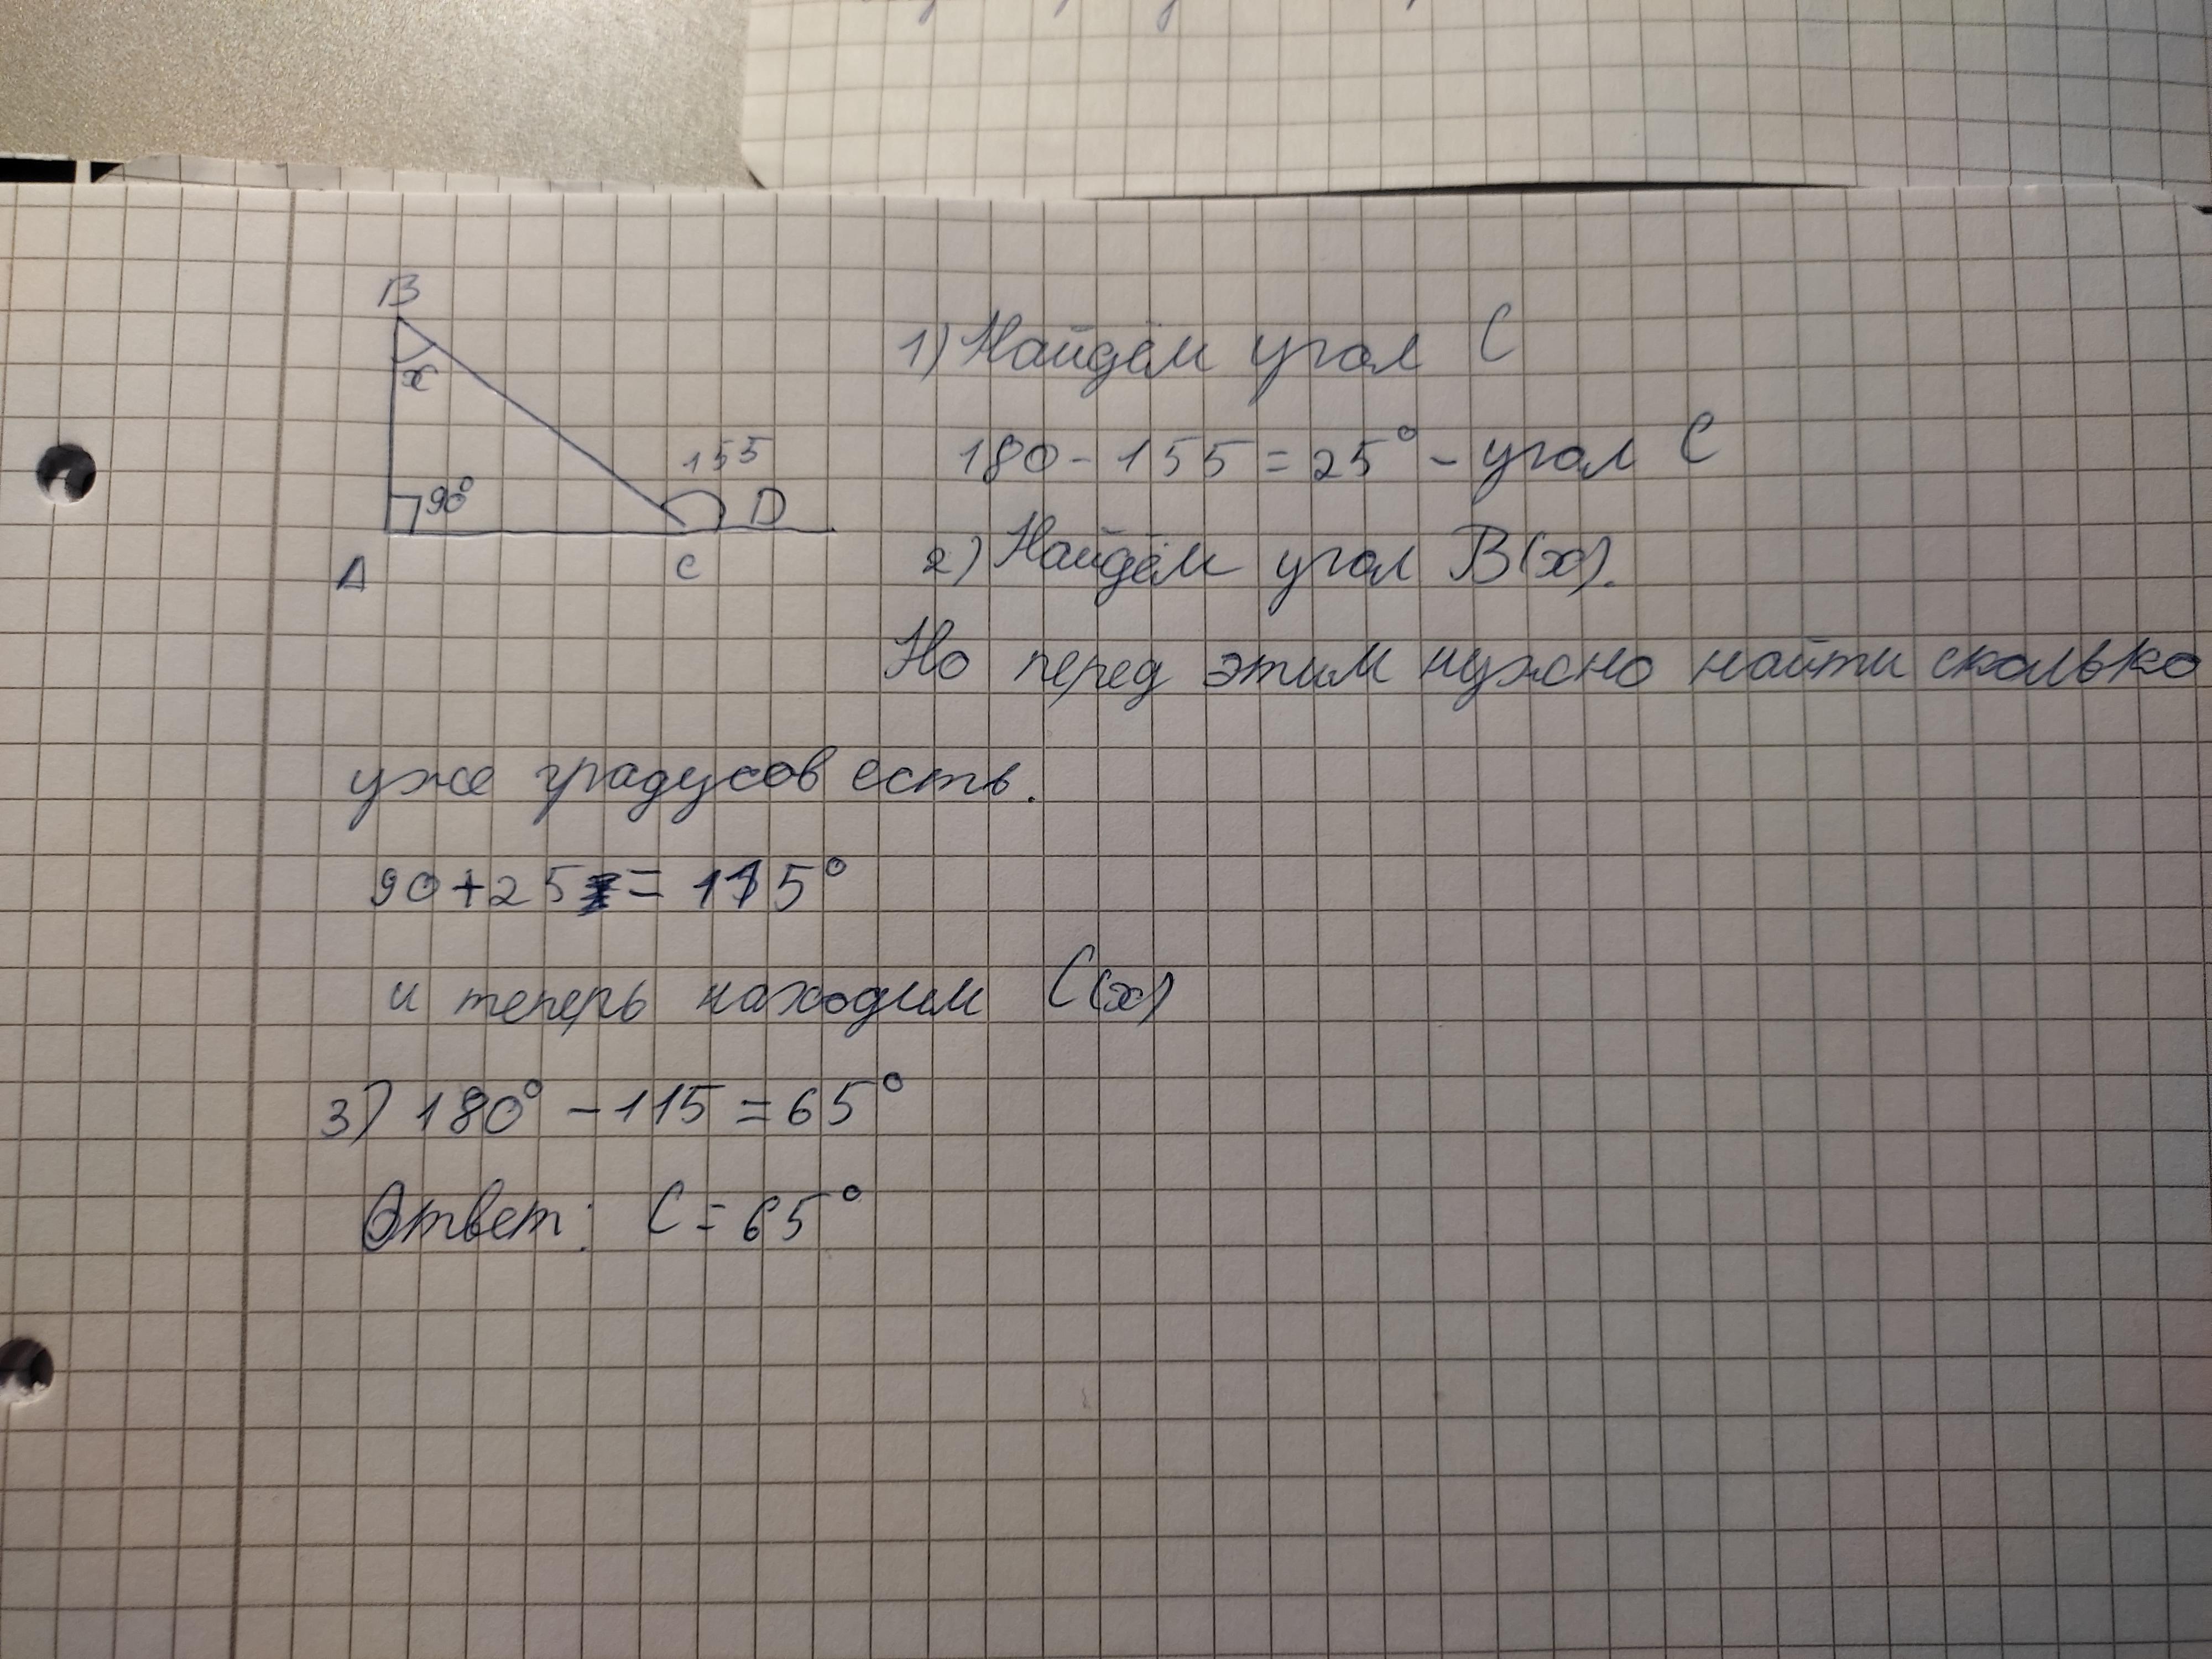 B
x
155
90°
D
A
c
1) Найдём угол C
180 - 155 = 25° - угол C
2) Найдём угол B(x).
Но перед этим нужно найти сколько
уже градусов есть.
90+25 = 115°
и теперь находим C(x)
3) 180° - 115 = 65°
Ответ: C = 65°